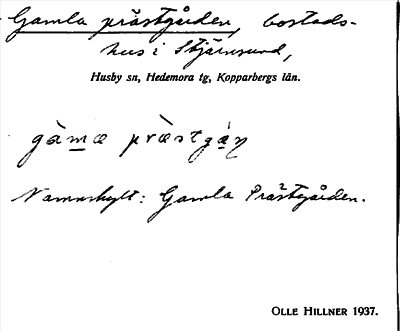 Gamla prästgården, bostads-
hus i Stjärnsund,
Husby sn, Hedemora tg, Kopparbergs län.
gàmæ præ̀stgáṇ
Namnskylt: Gamla Prästgården.
OLLE HILLNER 1937.